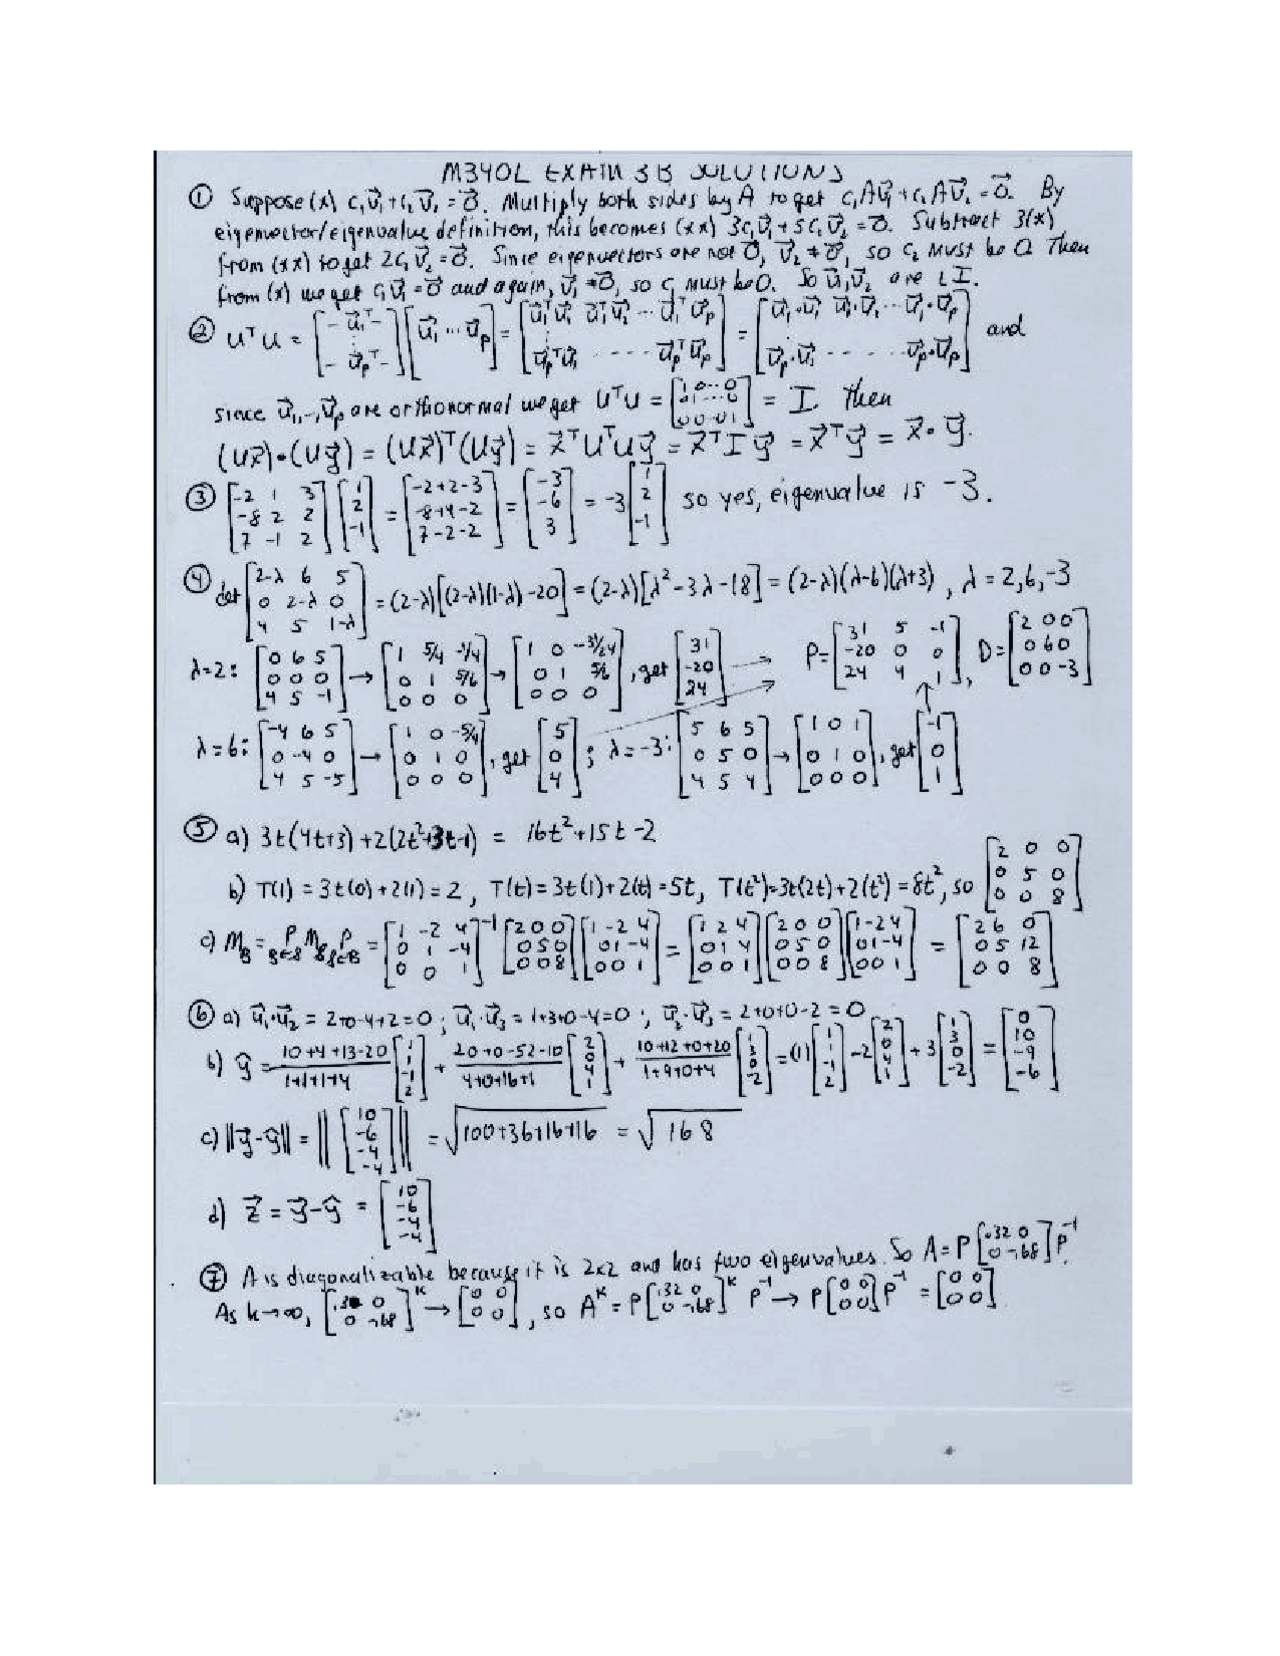 M340L EXAM 3B SOLUTIONS
① Suppose (*) c₁v⃗₁+c₂v⃗₂ = 0⃗. Multiply both sides by A to get c₁Av⃗₁+c₂Av⃗₂ = 0⃗. By
eigenvector/eigenvalue definition, this becomes (**) 3c₁v⃗₁+5c₂v⃗₂ = 0⃗. Subtract 3(*)
from (**) to get 2c₂v⃗₂ = 0⃗. Since eigenvectors are not 0⃗, v⃗₂ ≠ 0⃗, so c₂ must be 0. Then
from (*) we get c₁v⃗₁ = 0⃗ and again, v⃗₁ ≠ 0⃗, so c₁ must be 0. So v⃗₁,v⃗₂ are LI.
② UᵀU = [-u⃗₁ᵀ-; ⋮; -u⃗pᵀ-][u⃗₁ ... u⃗p] = [u⃗₁ᵀu⃗₁ u⃗₁ᵀu⃗₂ ... u⃗₁ᵀu⃗p; ⋮; u⃗pᵀu⃗₁ ... u⃗pᵀu⃗p] = [u⃗₁·u⃗₁ u⃗₁·u⃗₂ ... u⃗₁·u⃗p; u⃗p·u⃗₁ ... u⃗p·u⃗p] and
since u⃗₁,..,u⃗p are orthonormal we get UᵀU = [1 0 ... 0; 0 1 ... 0; 0 0 ... 0 1] = I. Then
(Ux⃗)·(Uy⃗) = (Ux⃗)ᵀ(Uy⃗) = x⃗ᵀUᵀUy⃗ = x⃗ᵀIy⃗ = x⃗ᵀy⃗ = x⃗·y⃗.
③ [-2 1 3; -8 2 2; 7 -1 2][1; 2; -1] = [-2+2-3; -8+4-2; 7-2-2] = [-3; -6; 3] = -3[1; 2; -1] so yes, eigenvalue is -3.
④ det[2-λ 6 5; 0 2-λ 0; 4 5 1-λ] = (2-λ)[(2-λ)(1-λ)-20] = (2-λ)[λ²-3λ-18] = (2-λ)(λ-6)(λ+3), λ = 2,6,-3
λ=2: [0 6 5; 0 0 0; 4 5 -1] → [1 5/4 -1/4; 0 1 5/6; 0 0 0] → [1 0 -31/24; 0 1 5/6; 0 0 0], get [31; -20; 24] → P=[31 5 -1; -20 0 0; 24 4 1], D=[2 0 0; 0 6 0; 0 0 -3]
λ=6: [-4 6 5; 0 -4 0; 4 5 -5] → [1 0 -5/4; 0 1 0; 0 0 0], get [5; 0; 4]; λ=-3: [5 6 5; 0 5 0; 4 5 4] → [1 0 1; 0 1 0; 0 0 0], get [-1; 0; 1]
⑤ a) 3t(4t+3)+2(2t²+3t-1) = 16t²+15t-2
b) T(1) = 3t(0)+2(1) = 2, T(t) = 3t(1)+2(t) = 5t, T(t²) = 3t(2t)+2(t²) = 8t², so [2 0 0; 0 5 0; 0 0 8]
c) M_B = P M P = [1 -2 4; 0 1 -4; 0 0 1]⁻¹[2 0 0; 0 5 0; 0 0 8][1 -2 4; 0 1 -4; 0 0 1] = [1 2 4; 0 1 4; 0 0 1][2 0 0; 0 5 0; 0 0 8][1 -2 4; 0 1 -4; 0 0 1] = [2 6 0; 0 5 12; 0 0 8]
⑥ a) u⃗₁·u⃗₂ = 2+0-4+2=0; u⃗₁·u⃗₃ = 1+3+0-4=0; u⃗₂·u⃗₃ = 2+0+0-2=0
b) ŷ = (10+4+13-20)/(1+1+1+4) [1; 1; -1; 2] + (20+0-52-10)/(4+0+16+1) [2; 0; 4; 1] + (10+12+0+20)/(1+9+0+4) [1; 3; 0; -2] = (1)[1; 1; -1; 2] -2[2; 0; 4; 1] +3[1; 3; 0; -2] = [0; 10; -9; -6]
c) ||y⃗-ŷ|| = ||[10; -6; -4; -4]|| = √(100+36+16+16) = √168
d) z⃗ = y⃗-ŷ = [10; -6; -4; -4]
⑦ A is diagonalizable because it is 2x2 and has two eigenvalues. So A=P[.32 0; 0 -.68]P⁻¹.
As k→∞, [.32 0; 0 -.68]ᵏ → [0 0; 0 0], so Aᵏ = P[.32 0; 0 -.68]ᵏ P⁻¹ → P[0 0; 0 0]P⁻¹ = [0 0; 0 0]